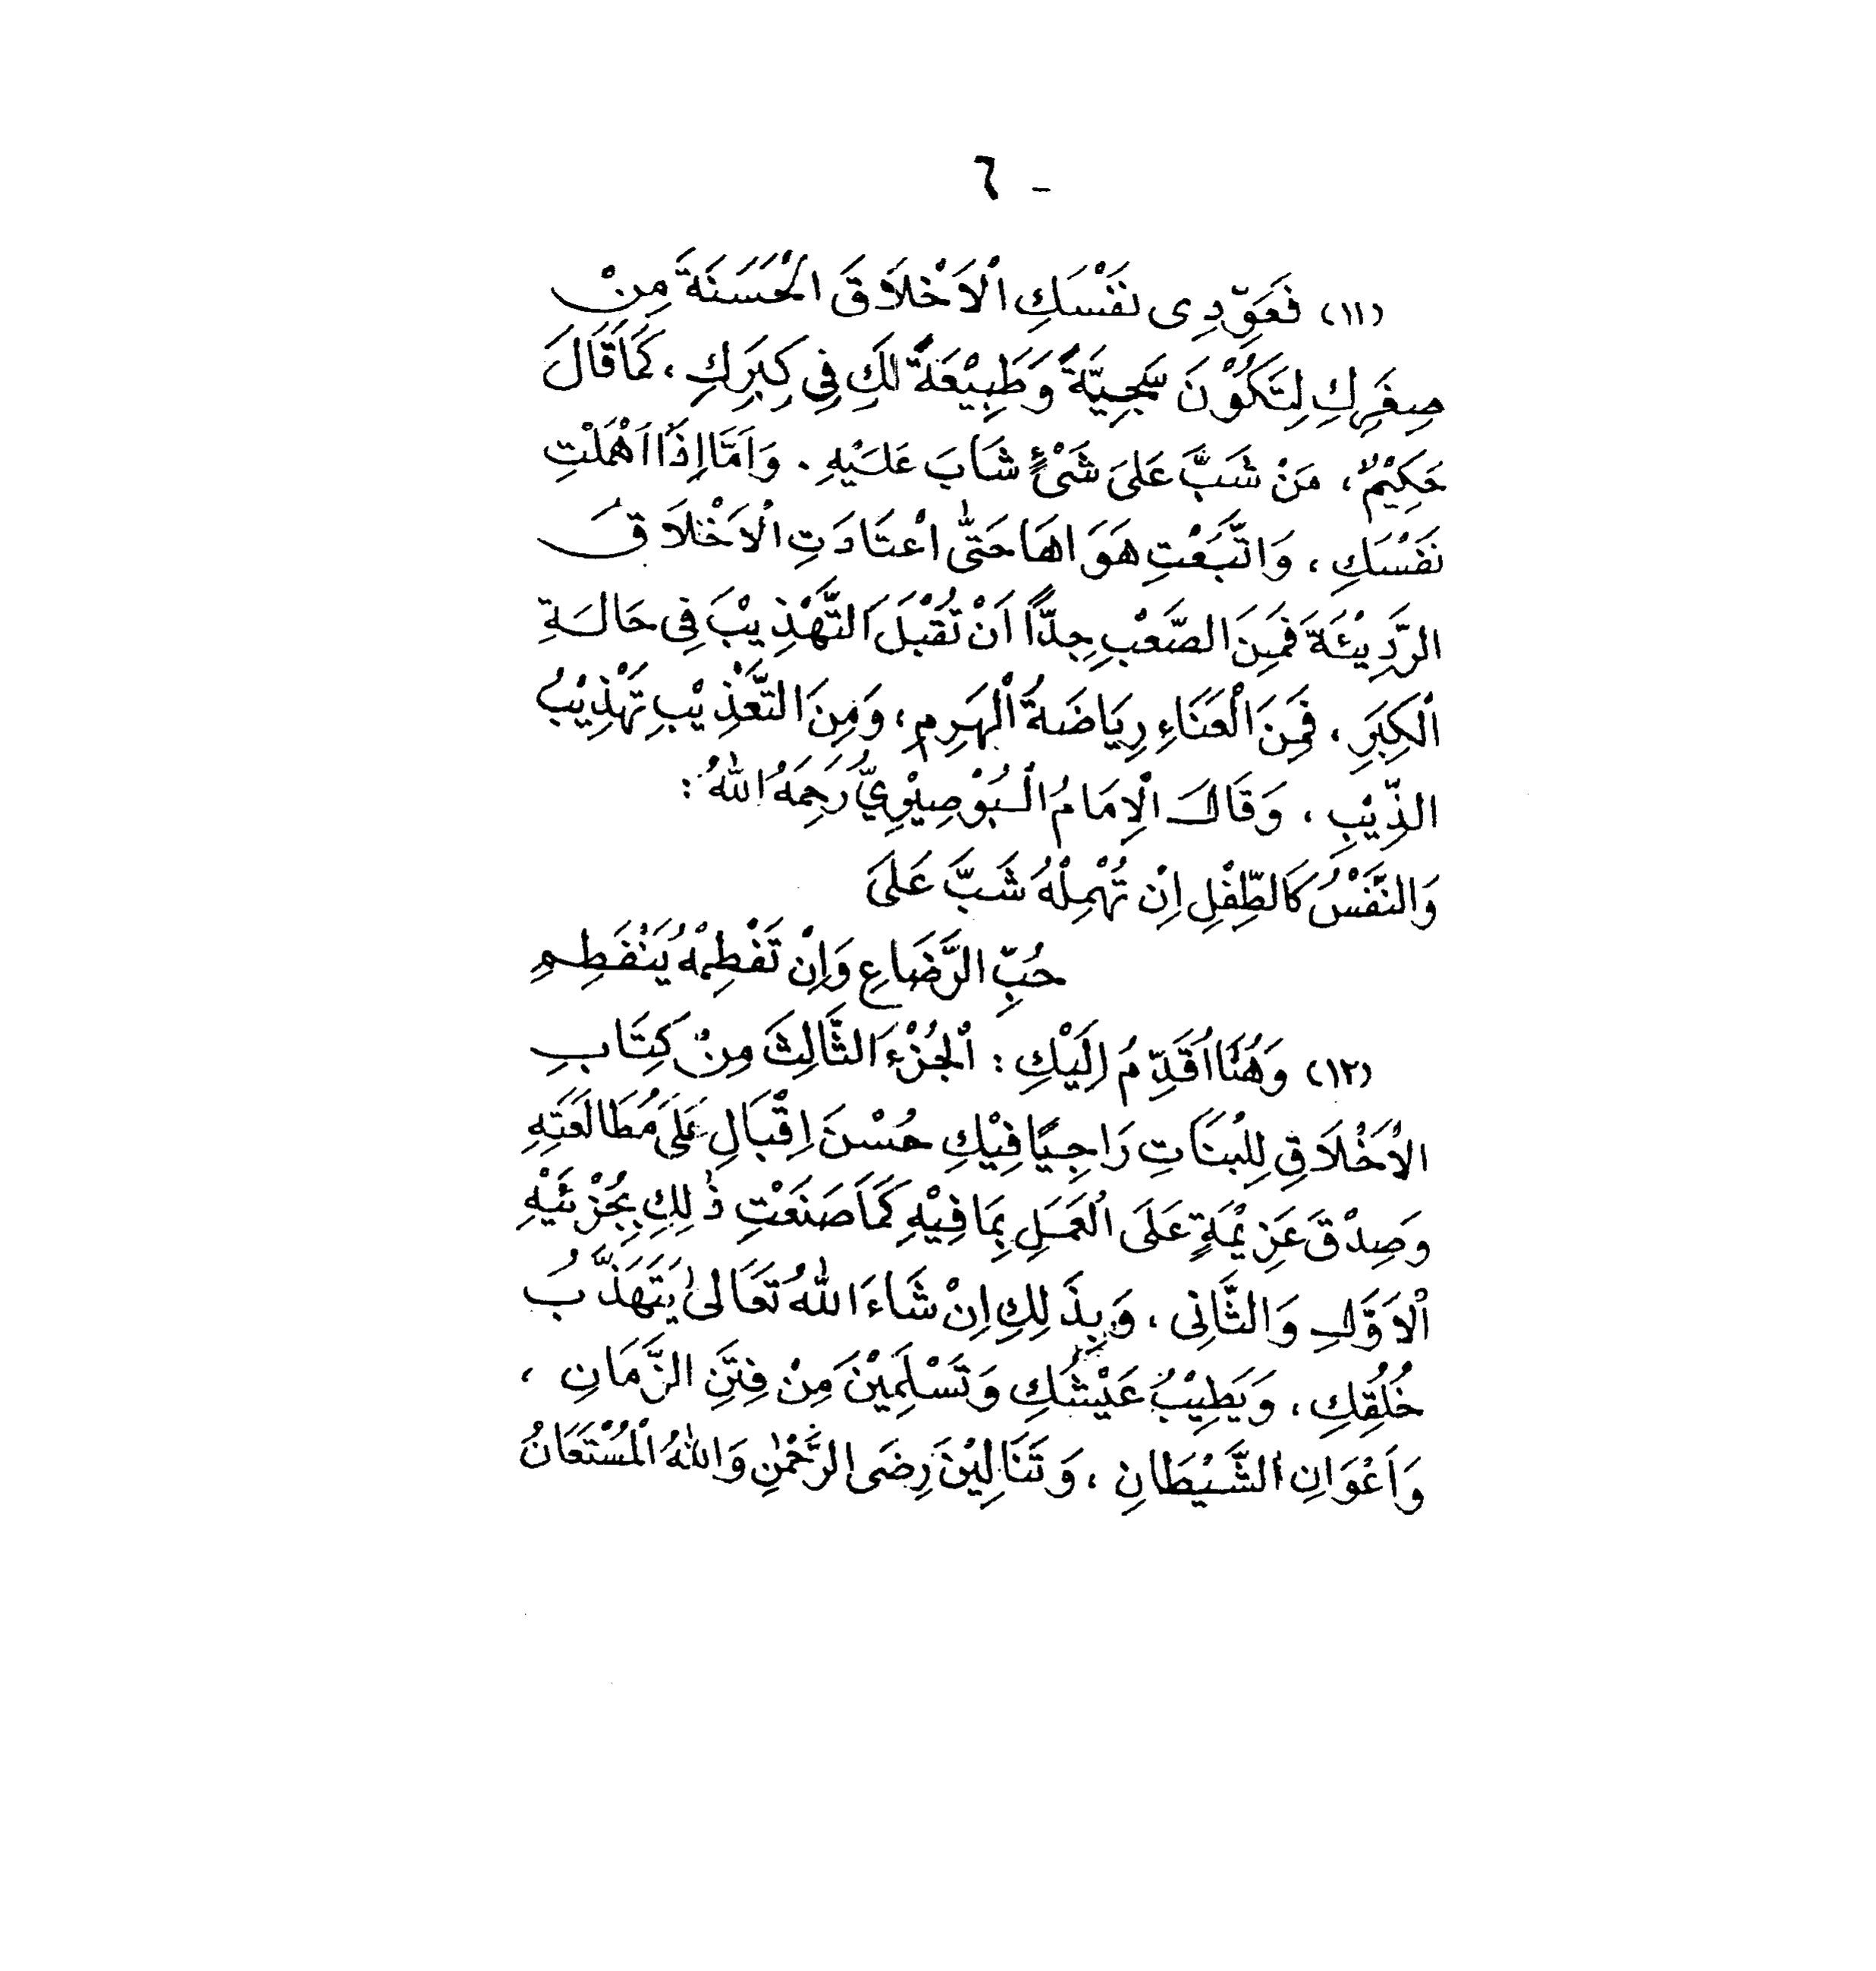 - ٦
(١١) فَعَوِّدِى نَفْسَكِ الْاَخْلَاقَ الْحَسَنَةَ مِنْ
صِغَرِكِ لِتَكُوْنَ سَجِيَّةً وَطَبِيْعَةً لَكِ فِى كِبَرِكِ، كَمَا قَالَ
حَكِيْمٌ، مَنْ شَبَّ عَلَىَ شَىْءٍ شَابَ عَلَيْهِ. وَاَمَّا اِذَا اَهْمَلْتِ
نَفْسَكِ، وَاتَّبَعْتِ هَوَاهَا حَتّٰى اعْتَادَتِ الْاَخْلَاقَ
الرَّدِيْئَةَ فَمِنَ الصَّعْبِ جِدًّا اَنْ تَقْبَلَ التَّهْذِيْبَ فِى حَالَةِ
الْكِبَرِ، فَمِنَ الْعَنَاءِ رِيَاضَةُ الْهَرِمِ، وَمِنَ التَّعْذِيْبِ تَهْذِيْبُ
الذِّيْبِ، وَقَالَ الْاِمَامُ الْبُوْصِيْرِيُّ رَحِمَهُ اللّٰهُ:
وَالنَّفْسُ كَالطِّفْلِ اِنْ تُهْمِلْهُ شَبَّ عَلَىَ
حُبِّ الرَّضَاعِ وَاِنْ تَفْطِمْهُ يَنْفَطِمِ
(١٢) وَهُنَا اُقَدِّمُ اِلَيْكِ: اَلْجُزْءَ الثَّالِثَ مِنْ كِتَابِ
الْاَخْلَاقِ لِلْبَنَاتِ رَاجِيًا فِيْكِ حُسْنَ اِقْبَالِ عَلَىَ مُطَالَعَتِهِ
وَصِدْقَ عَزِيْمَةٍ عَلَى الْعَمَلِ بِمَا فِيْهِ كَمَا صَنَعْتِ ذٰلِكِ بِجُزْئَيْهِ
الْاَوَّلِ وَالثَّانِى، وَبِذَلِكِ اِنْ شَاءَ اللّٰهُ تَعَالىٰ يَتَهَذَّبُ
خُلُقُكِ، وَيَطِيْبُ عَيْشُكِ وَتَسْلَمِيْنَ مِنْ فِتَنِ الزَّمَانِ،
وَاَعْوَانِ الشَّيْطَانِ، وَتَنَالِيْنَ رِضَى الرَّحْمٰنِ وَاللّٰهُ الْمُسْتَعَانُ